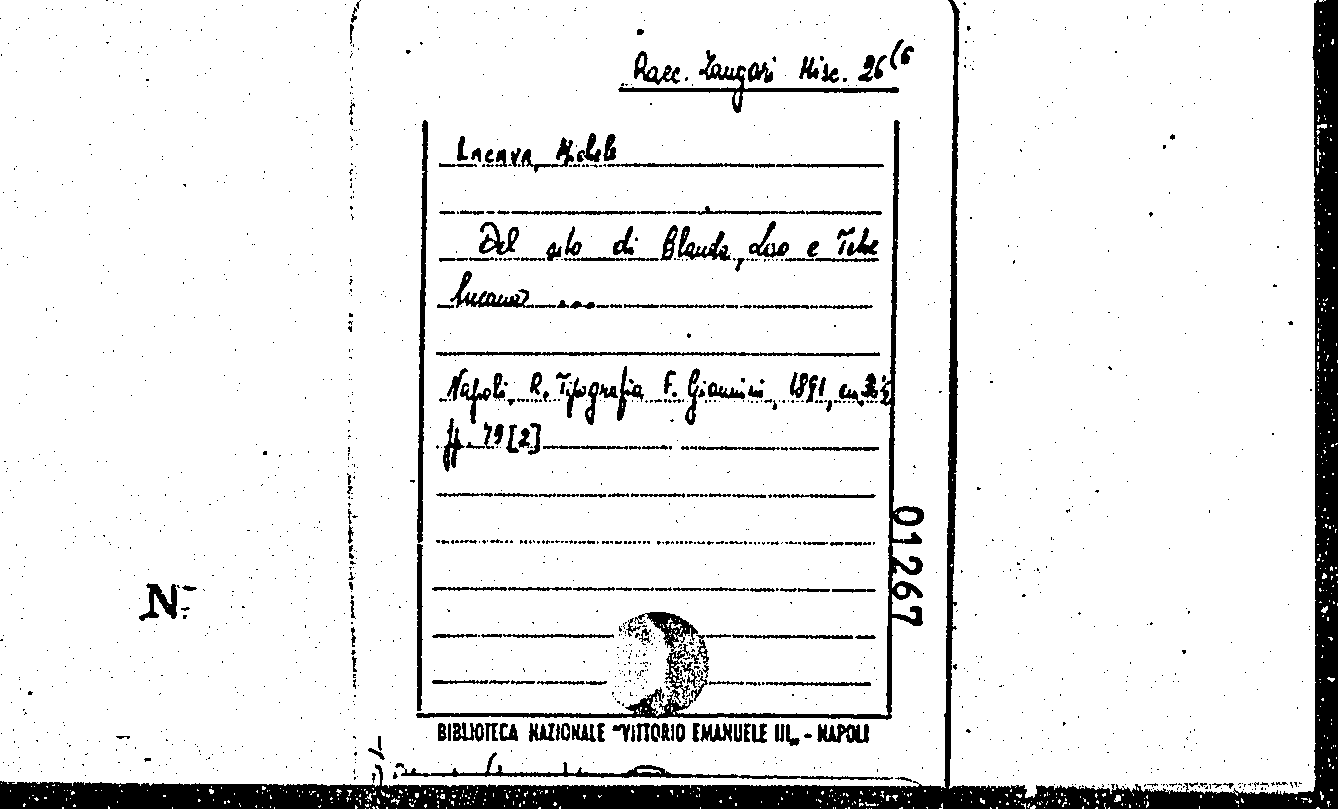 Racc. Zangari Misc. 26(6
Lacava, Michele
Del sito di Blanda, Lao e Tebe
lucana ...
Napoli, R. Tipografia F. Giannini, 1891, cm.
pp. 79[2]
01267
N:
BIBLIOTECA NAZIONALE "VITTORIO EMANUELE III„ - NAPOLI